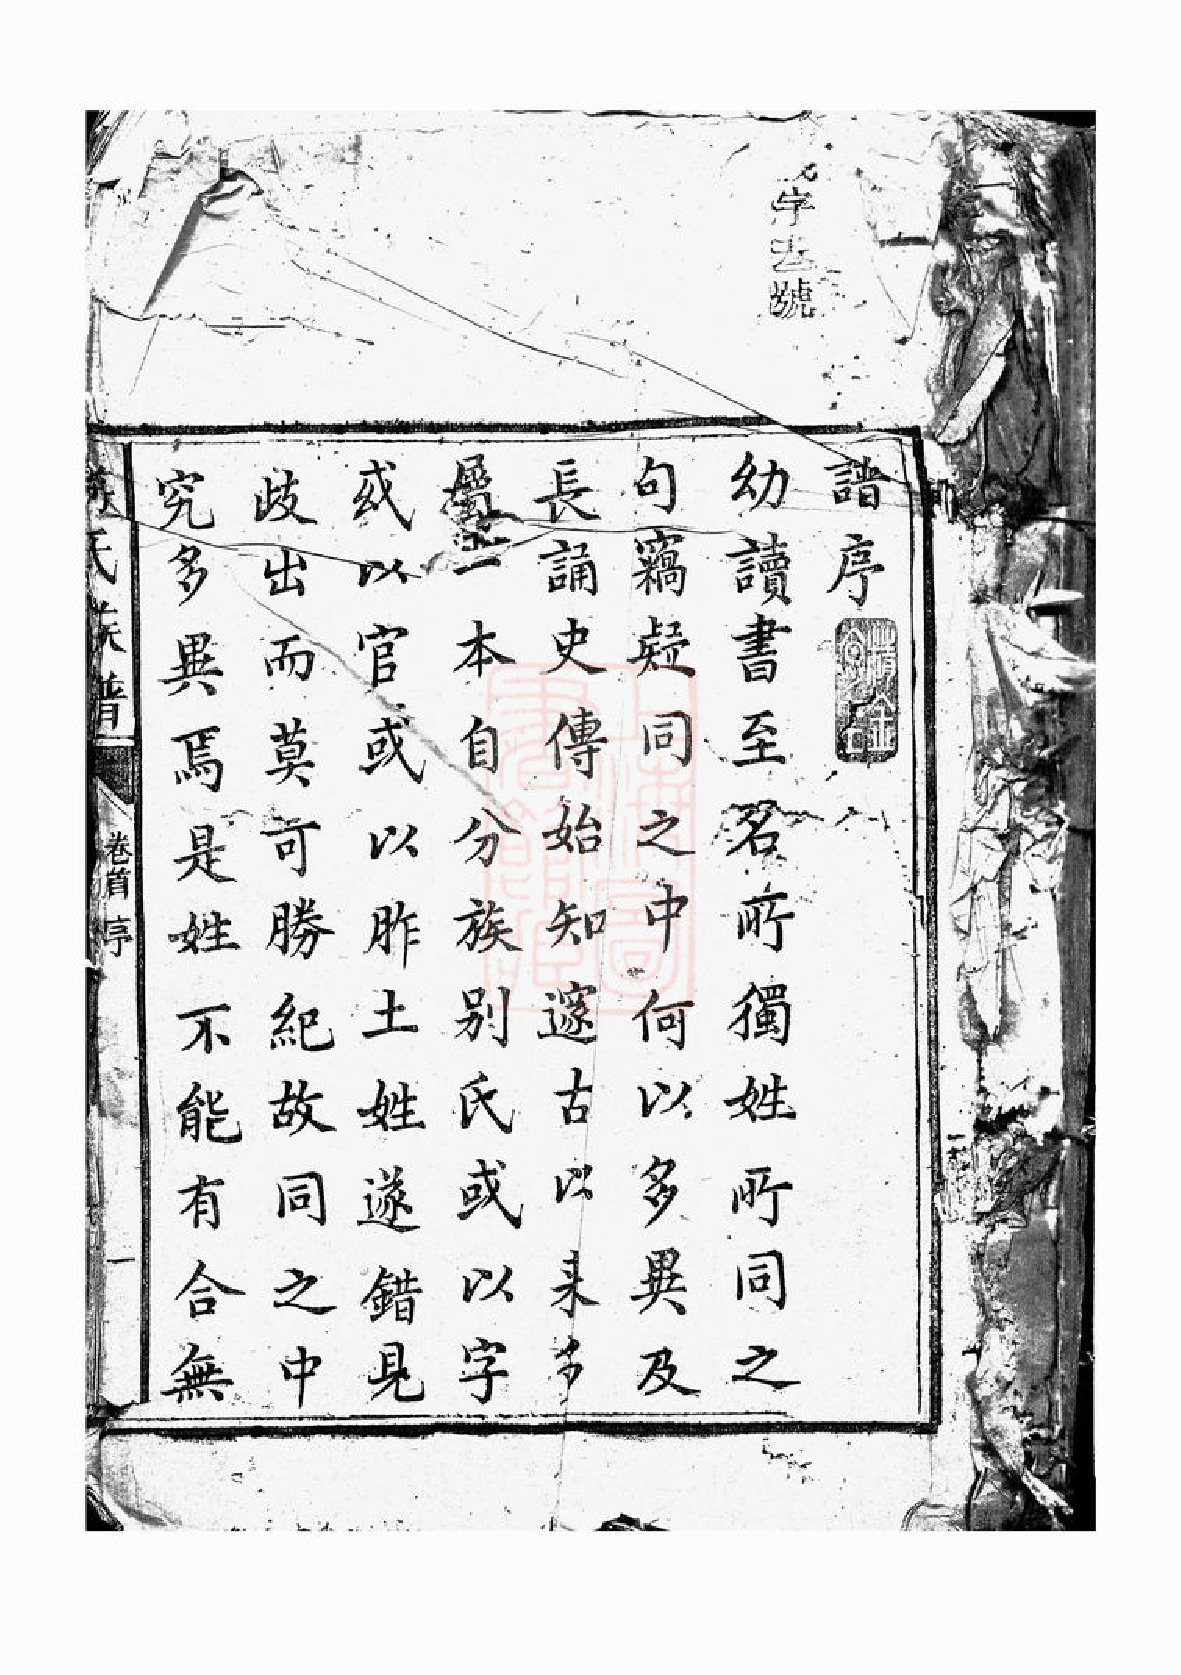 字 號
譜序
幼讀書至名所獨姓所同之
句竊疑同之中何以多異及
長誦史傳始知邃古以来多
屬一本自分族别氏或以字
或以官或以胙土姓遂錯見
歧出而莫可勝紀故同之中
究多異焉是姓不能有合無
氏族譜
卷首
序
一
上海圖書館藏